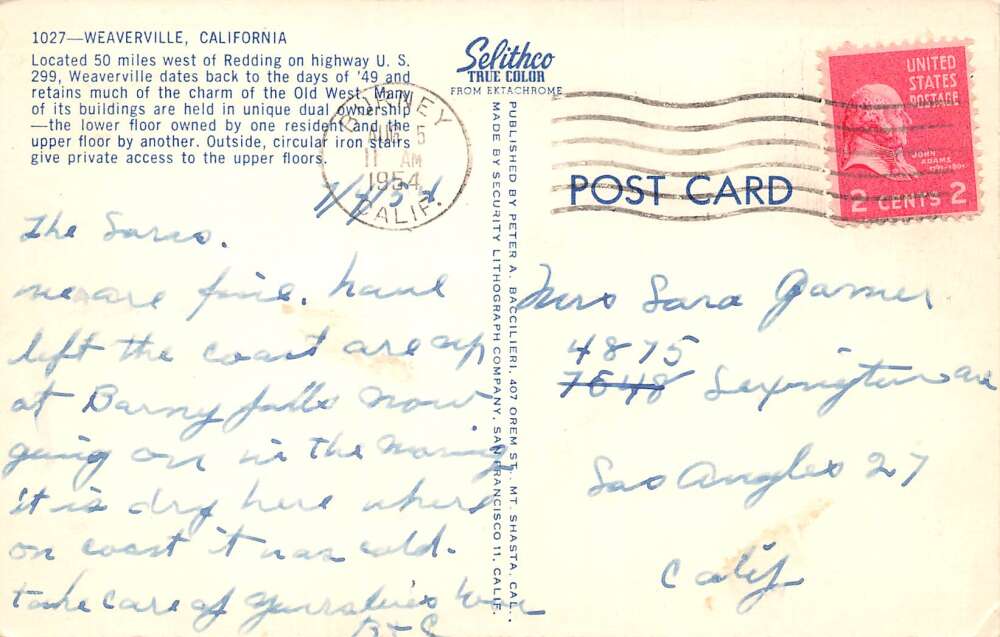 1027—WEAVERVILLE, CALIFORNIA
Located 50 miles west of Redding on highway U. S.
299, Weaverville dates back to the days of '49 and
retains much of the charm of the Old West. Many
of its buildings are held in unique dual ownership
—the lower floor owned by one resident and the
upper floor by another. Outside, circular iron stairs
give private access to the upper floors.
Selithco
TRUE COLOR
FROM EKTACHROME
BURNEY
AUG 5
11 AM
1954
CALIF.
UNITED
STATES
POSTAGE
JOHN
ADAMS
2 CENTS 2
POST CARD
PUBLISHED BY PETER A. BACCILIERI, 407 OREM ST., MT. SHASTA, CAL.
MADE BY SECURITY LITHOGRAPH COMPANY, SAN FRANCISCO 11, CALIF.
the
we are fine. have
left the coast are up
at Barny falls now
going on in the morning
it is dry here where
on coast it was cold.
take care of yourselves
Mrs Sara Garner
4875
7648 Lexington ave
Los Angles 27
Calif